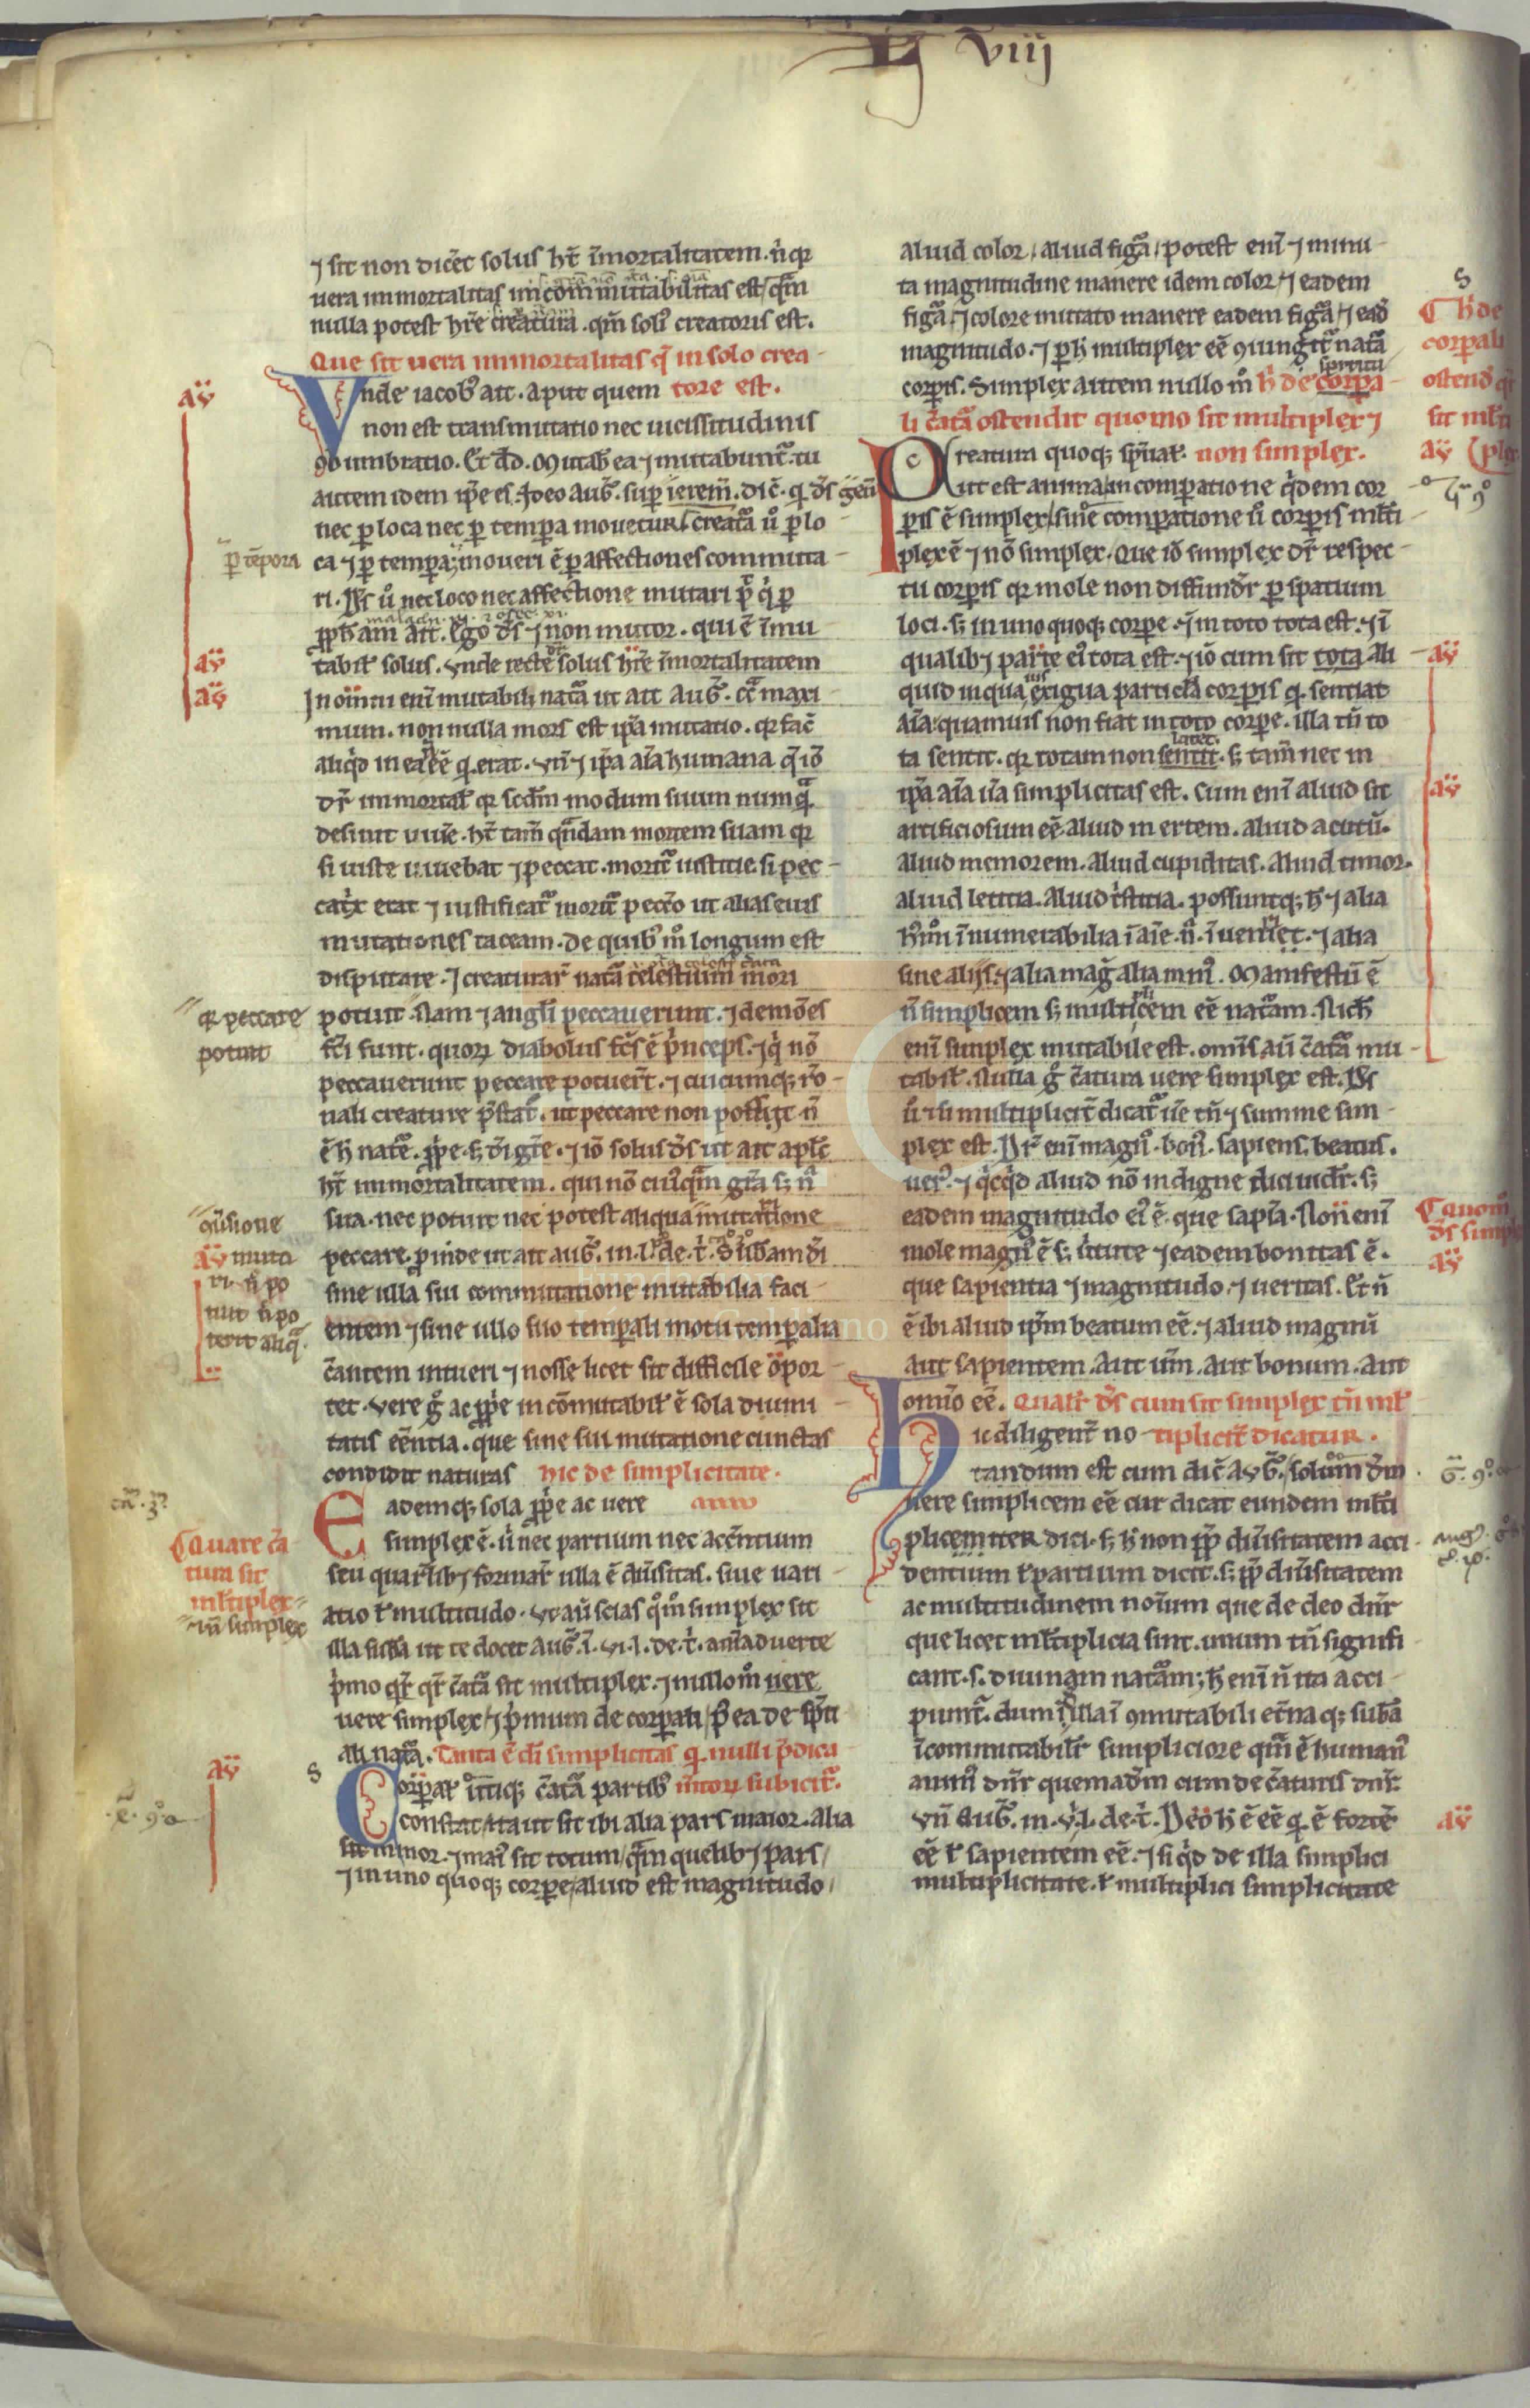 L viii
⁊ sic non dic̄et solus ht̄ īmortalitatem. n̄ quia
uera inmortalitas incōmutabilitas est / quā
nulla potest hr̄e creatura . qm̄ soli' creatoris est.
Que sit uera inmortalitas q̄ in solo crea
Vnde iacob' ait. aput quem tore est.
non est transmutatio nec uicissitudinis
obumbratio. Et dd̄. Mutab̄ ea ⁊ mutabunt̄. tu
autem idem ip̄e es. Ideo auḡ. sup̄ ierem̄. dic̄. q̄ ds̄ gen̄
nec p̄ loca nec p̄ tempa mouetur creat̄a ů p̄ lo
p̄ tēpora
ca ⁊ p̄ tempa; moueri ē p̄ affectiones commuta
ri. Ds̄ ů nec loco nec affectione mutari p̄t q̇ p̄
pp̄h̄am ait. Ego ds̄ ⁊ non mutor. qui ē īmu
tabil' solus. Vnde recte solus hr̄e īmortalitatem
aȳ
aȳ
aȳ
In omni enī mutabili nat̄a ut ait auḡ. c̄t̄ maxi
mum. non nulla mors est ip̄a mutatio. quia fac̄
aliq̇d in ea ēē q̄ erat. Vn̄ ⁊ ip̄a aīa humana q̄ iō
dr̄ immortal' quia scd̄m modum suum numq̄
desinit uiu̅e. ht̄ tam̄ quādam mortem suam quia
si iuste uiuebat ⁊ peccat. morit̄ iustitie. si pec
cat̄x erat ⁊ iustificat̄ morit̄ pecc̄o ut alias eius
mutationes taceam. de quib' m̊ longum est
disputare. ⁊ creaturar̄ nat̄a celestium mori
quia peccare
potuit
potuit. Nam ⁊ angl̄i peccauerunt. ⁊ demōes
fc̄i sunt. quorꝝ diabolus fc̄s ē p̄nceps. ⁊ q̇ nō
peccauerunt peccare potuer̄t. ⁊ cuicumq; rō
nali creature p̄stat̄. ut peccare non possit n̄
ē h̄ nat̄e. pp̄e. s; dī gr̄e. ⁊ iō solus ds̄ ut ait aplc̄
ht̄ inmortalitatem. qui nō cui'q̄m gr̄a s; n̄a
sua. nec potuit nec potest aliqua mutatione
peccare. proinde ut ait auḡ. in. l. de. t̄. Sub̄am dī
sine ulla sui commutatione mutabilia faci
entem ⁊ sine ullo suo temp̄ali motu temp̄alia
c̄antem intueri ⁊ nosse licet sit difficile opor
tet. Vere g̊ ac pp̄e incōmutabil' ē sola diuini
tatis eēntia. que sine sui mutatione cunctas
condidit naturas hic de simplicitate.
Eademq; sola pp̄e ac uere
simplex ē. ů nec partium nec accn̄tium
seu quarlib; formar̄ ulla ē diu̅sitas. siue uari
atio ł multitudo. Vt aū scias q̊m̊ simplex sit
illa sub̄a ut te docet auḡ. ī. vi. l. de. t̄. animaduerte
p̄mo quare quare c̄at̄a sit multiplex. ⁊ nullo m̊ uere
uere simplex / ⁊ p̄mum de corp̄ali / p' ea de sp̄it
ali nat̄a. Tanta ē dī simplicitas q̄ nulli p̄dica
Quare c̄a
tura sit
ml̄tiplex
⁊ n̄ simplex
aȳ
Corp̄al' utiq; c̄at̄a partib' mentorꝝ subicit̄.
constat / ita ut sit ibi alia pars maior. alia
sit minor. ⁊ mai' sit totum / q̄m quelib; pars /
⁊ in uno quoq; corp̄e / aliud est magnitudo /
aliud color / aliud figa / potest enī ⁊ minu
ta magnitudine manere idem color / ⁊ eadem
figa / ⁊ colore mutato manere eadem figa / ⁊ ead̄
magnitudo. ⁊ p̄ h̄ multiplex eē 9uingit̄ nat̄a
spiritu
corp̄is. Simplex autem nullo m̊ h̄ de corp̄a
li c̄at̄a ostendit quomo sit multiplex ⁊
h̄ de
corp̄ali
ostend̄ q̄
sit ml̄ti
plex
Creatura quoq; sp̄ual'. non simplex.
ut est anima / in comp̄atione q̇dem cor
p̄is ē simplex / sine comp̄atione ů corp̄is ml̄ti
plex ē ⁊ nō simplex. Que iō simplex dr̄ respec
tu corp̄is quia mole non diffundr̄ p̄ spatium
loci. s; in uno quoq; corp̄e. ⁊ in toto tota est. ⁊ ī
qualib; parte ei' tota est. ⁊ iō cum sit tota ali
aȳ
quid in qua uis exigua particl̄a corp̄is q̄ sentiat
aīa: quamuis non fiat in toto corp̄e. illa tn̄ to
latet.
ta sentit. quia totam non sentit. s; tam̄ nec in
ip̄a aīa ua simplicitas est. Cum enī aliud sit
aȳ
artificiosum eē aliud inertem. aliud acutū.
aliud memorem. aliud cupiditas. aliud timor.
aliud letitia. aliud tristitia. possuntq; h̄ ⁊ alia
h'm̊ īnumerabilia ī aīe. n̄. īueniri. ⁊ alia
sine aliis. ⁊ alia mag̊ alia min'. Manifestū ē
n̄ simplicem s; multiplicem eē nat̄am. Nich̄
enī simplex mutabile est. omīs aū c̄at̄a mu
tabil'. Nulla g̊ c̄atura uere simplex est. Ds̄
ů ⁊ si multiplicit̄ dicat̄ ue tn̄ ⁊ summe sim
plex est. Dr̄ enī magn'. bon'. sapiens. beatus.
uer'. ⁊ q̇cq̇d aliud nō indigne dici uidr̄. s;
eadem magnitudo ei' ē. que sapīa. Non enī
Quom̊
ds̄ simpl
aȳ
mole magn' ē s; u̇tute ⁊ eadem bonitas ē.
que sapientia ⁊ magnitudo. ⁊ ueritas. Et n̄
ē ibi aliud ip̄m beatum eē. ⁊ aliud magnū
aut sapientem. aut um̄. aut bonum. aut
omīo eē. Qualit̄ ds̄ cum sit simplex tn̄ ml̄
Hic diligent̄ no tiplicit̄ dicatur.
tandum est cum dic̄ auḡ. solum dm̄
uere simplicem eē cur dicat eundem ml̄ti
pliciter dici. s; h̄ non pp̄ diu̅sitatem acci
dentium ł partium dicit. s; pp̄ diu̅sitatem
ac multitudinem noīum que de deo dn̄r
que licet ml̄tiplicia sint. unum tn̄ signifi
cant. s. diuinam nat̄am; h̄ enī n̄ ita acci
piunt̄. dum illa ī 9mutabili et̄na q; sub̄a
īcommutabilit̄ simpliciore q̄m ē human'
anim' dn̄r quemadm̄ cum de c̄aturis dn̄r.
Vn̄ auḡ. in. vi. l. de. t̄. Deo h̄ ē eē q̄ ē fortē
aȳ
eē ł sapientem eē. ⁊ si q̇d de illa simplici
multiplicitate. ł multiplici simplicitate